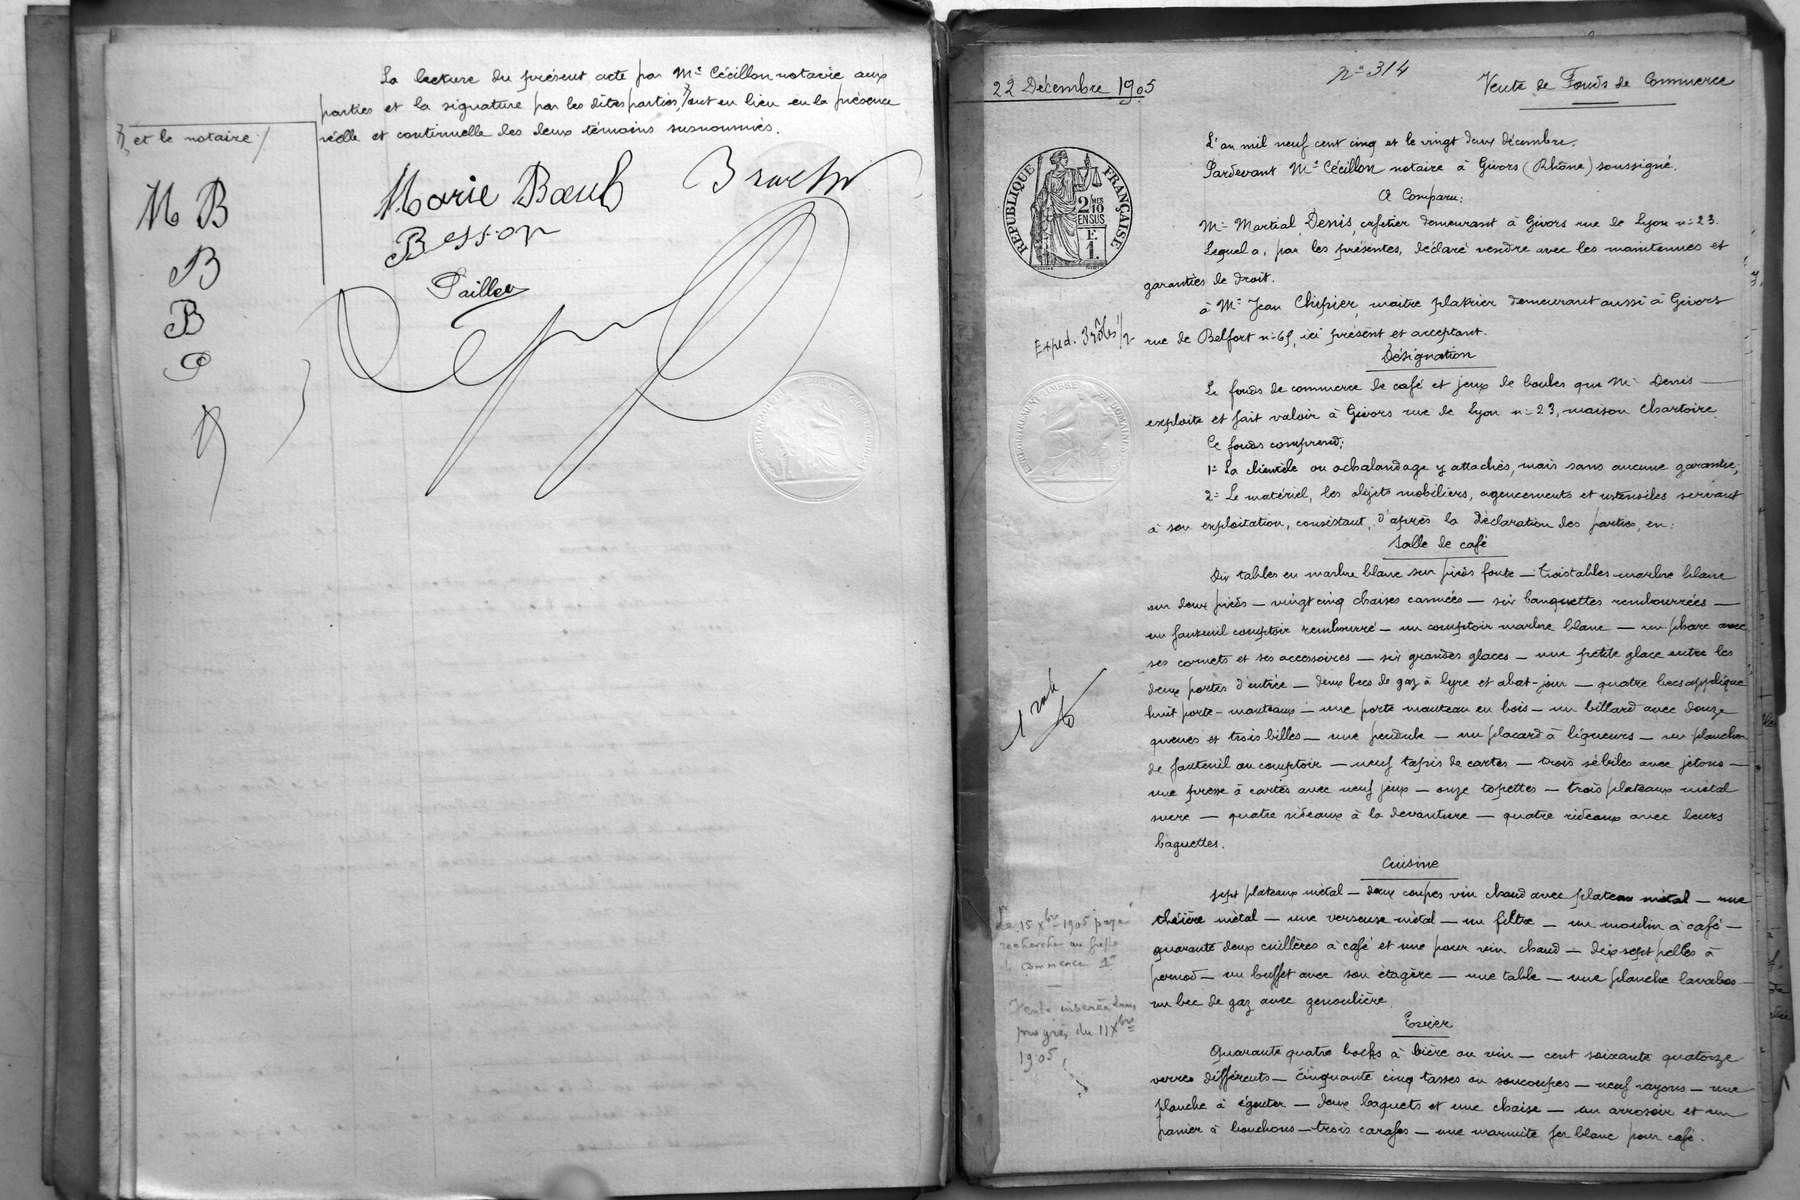 La lecture du présent acte par Me Cécillon notaire aux
parties et la signature par les dites parties, ont eu lieu en la présence
réelle et continuelle des deux témoins susnommés.
et le notaire /
Marie Bœuf
Besson
Paillet
M B
B
B
P
22 Décembre 1905
No 314
Vente de Fonds de Commerce
L'an mil neuf cent cinq et le vingt deux décembre.
Pardevant Me Cécillon notaire à Givors (Rhône) soussigné.
A Comparu:
Mr Martial Denis, cafetier demeurant à Givors rue de Lyon no 23.
Lequel a, par les présentes, déclaré vendre avec les maintenues et
garanties de droit.
à Mr Jean Chipier, maitre platrier demeurant aussi à Givors
rue de Belfort no 65, ici présent et acceptant.
RÉPUBLIQUE FRANÇAISE
2 MES
10
EN SUS
F.
1.
Exped.
Désignation
Le fonds de commerce de café et jeux de boules que Mr Denis —
exploite et fait valoir à Givors rue de Lyon no 23, maison Chartoire.
Ce fonds comprend:
1o La clientèle ou achalandage y attachés, mais sans aucune garantie;
2o Le matériel, les objets mobiliers, agencements et ustensiles servant
à son exploitation, consistant, d'après la déclaration des parties, en:
Salle de café
Dix tables en marbre blanc sur pieds fonte — trois tables marbre blanc
sur deux pieds — vingt cinq chaises cannées — six banquettes rembourrées —
un fauteuil comptoir rembourré — un comptoir marbre blanc — un phare avec
ses cornets et ses accessoires — six grandes glaces — une petite glace entre les
deux portes d'entrée — deux becs de gaz à lyre et abat-jour — quatre becs applique
huit porte-manteaux — une porte manteau en bois — un billard avec douze
queues et trois billes — une pendule — un placard à liqueurs — un plancher
de fauteuil au comptoir — neuf tapis de cartes — trois sébiles avec jetons —
une presse à cartes avec neuf jeux — onze topettes — trois plateaux métal
sucre — quatre rideaux à la devanture — quatre rideaux avec leurs
baguettes.
Cuisine
Sept plateaux métal — deux coupes vin chaud avec plateau métal — une
théière métal — une verseuse métal — un filtre — un moulin à café —
quarante deux cuillères à café et une pour vin chaud — dix sept pelles à
pernod — un buffet avec son étagère — une table — une planche lavabos —
un bec de gaz avec genouillère
Le 15 Xbre 1905 payé
recherche au greffe
de commerce 1f
Vente insérée dans
progrès du 11 Xbre
1905
Evier
Quarante quatre bocks à bière ou vin — cent soixante quatorze
verres différents — cinquante cinq tasses ou soucoupes — neuf rayons — une
planche à égouter — deux baquets et une chaise — un arrosoir et un
panier à bouchons — trois carafes — une marmite fer blanc pour café.